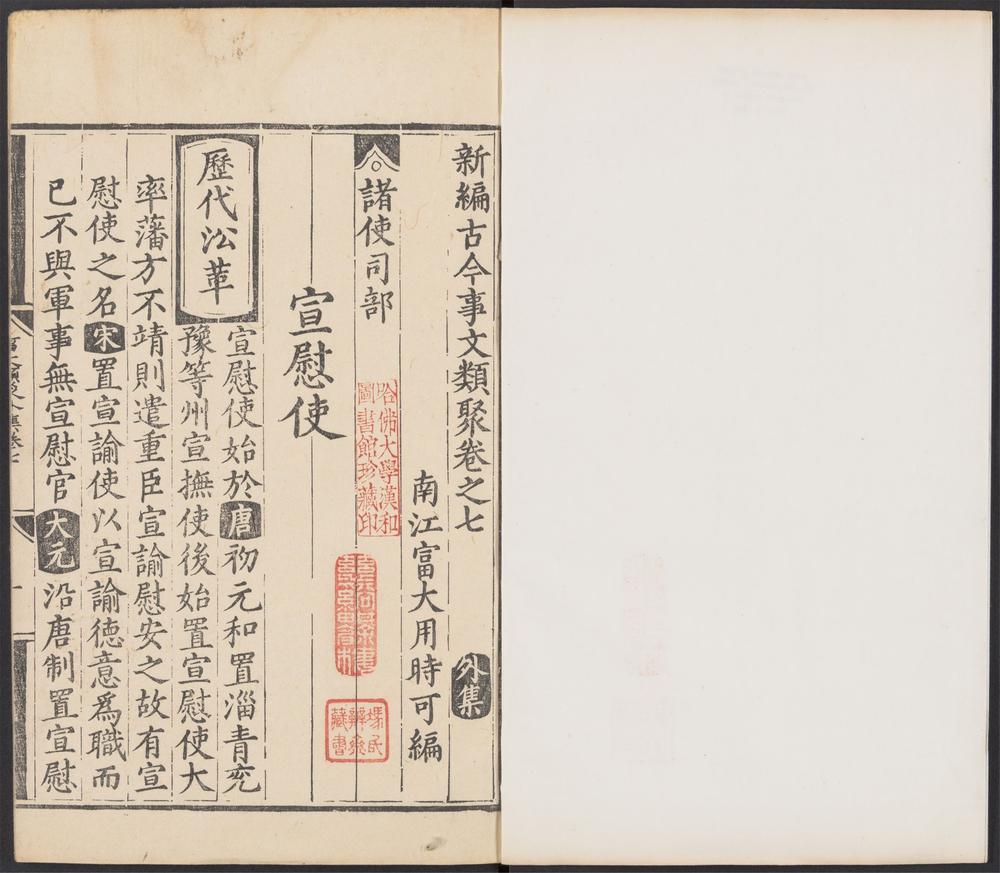 新編古今事文類聚卷之七 外集
南江富大用時可編
諸使司部
哈佛大學漢和
圖書館珍藏印
宣慰使
歷代㳂革
宣慰使始於唐初元和置淄青兖
豫等州宣撫使後始置宣慰使大
率藩方不靖則遣重臣宣諭慰安之故有宣
慰使之名宋置宣諭使以宣諭德意爲職而
已不與軍事無宣慰官大元沿唐制置宣慰